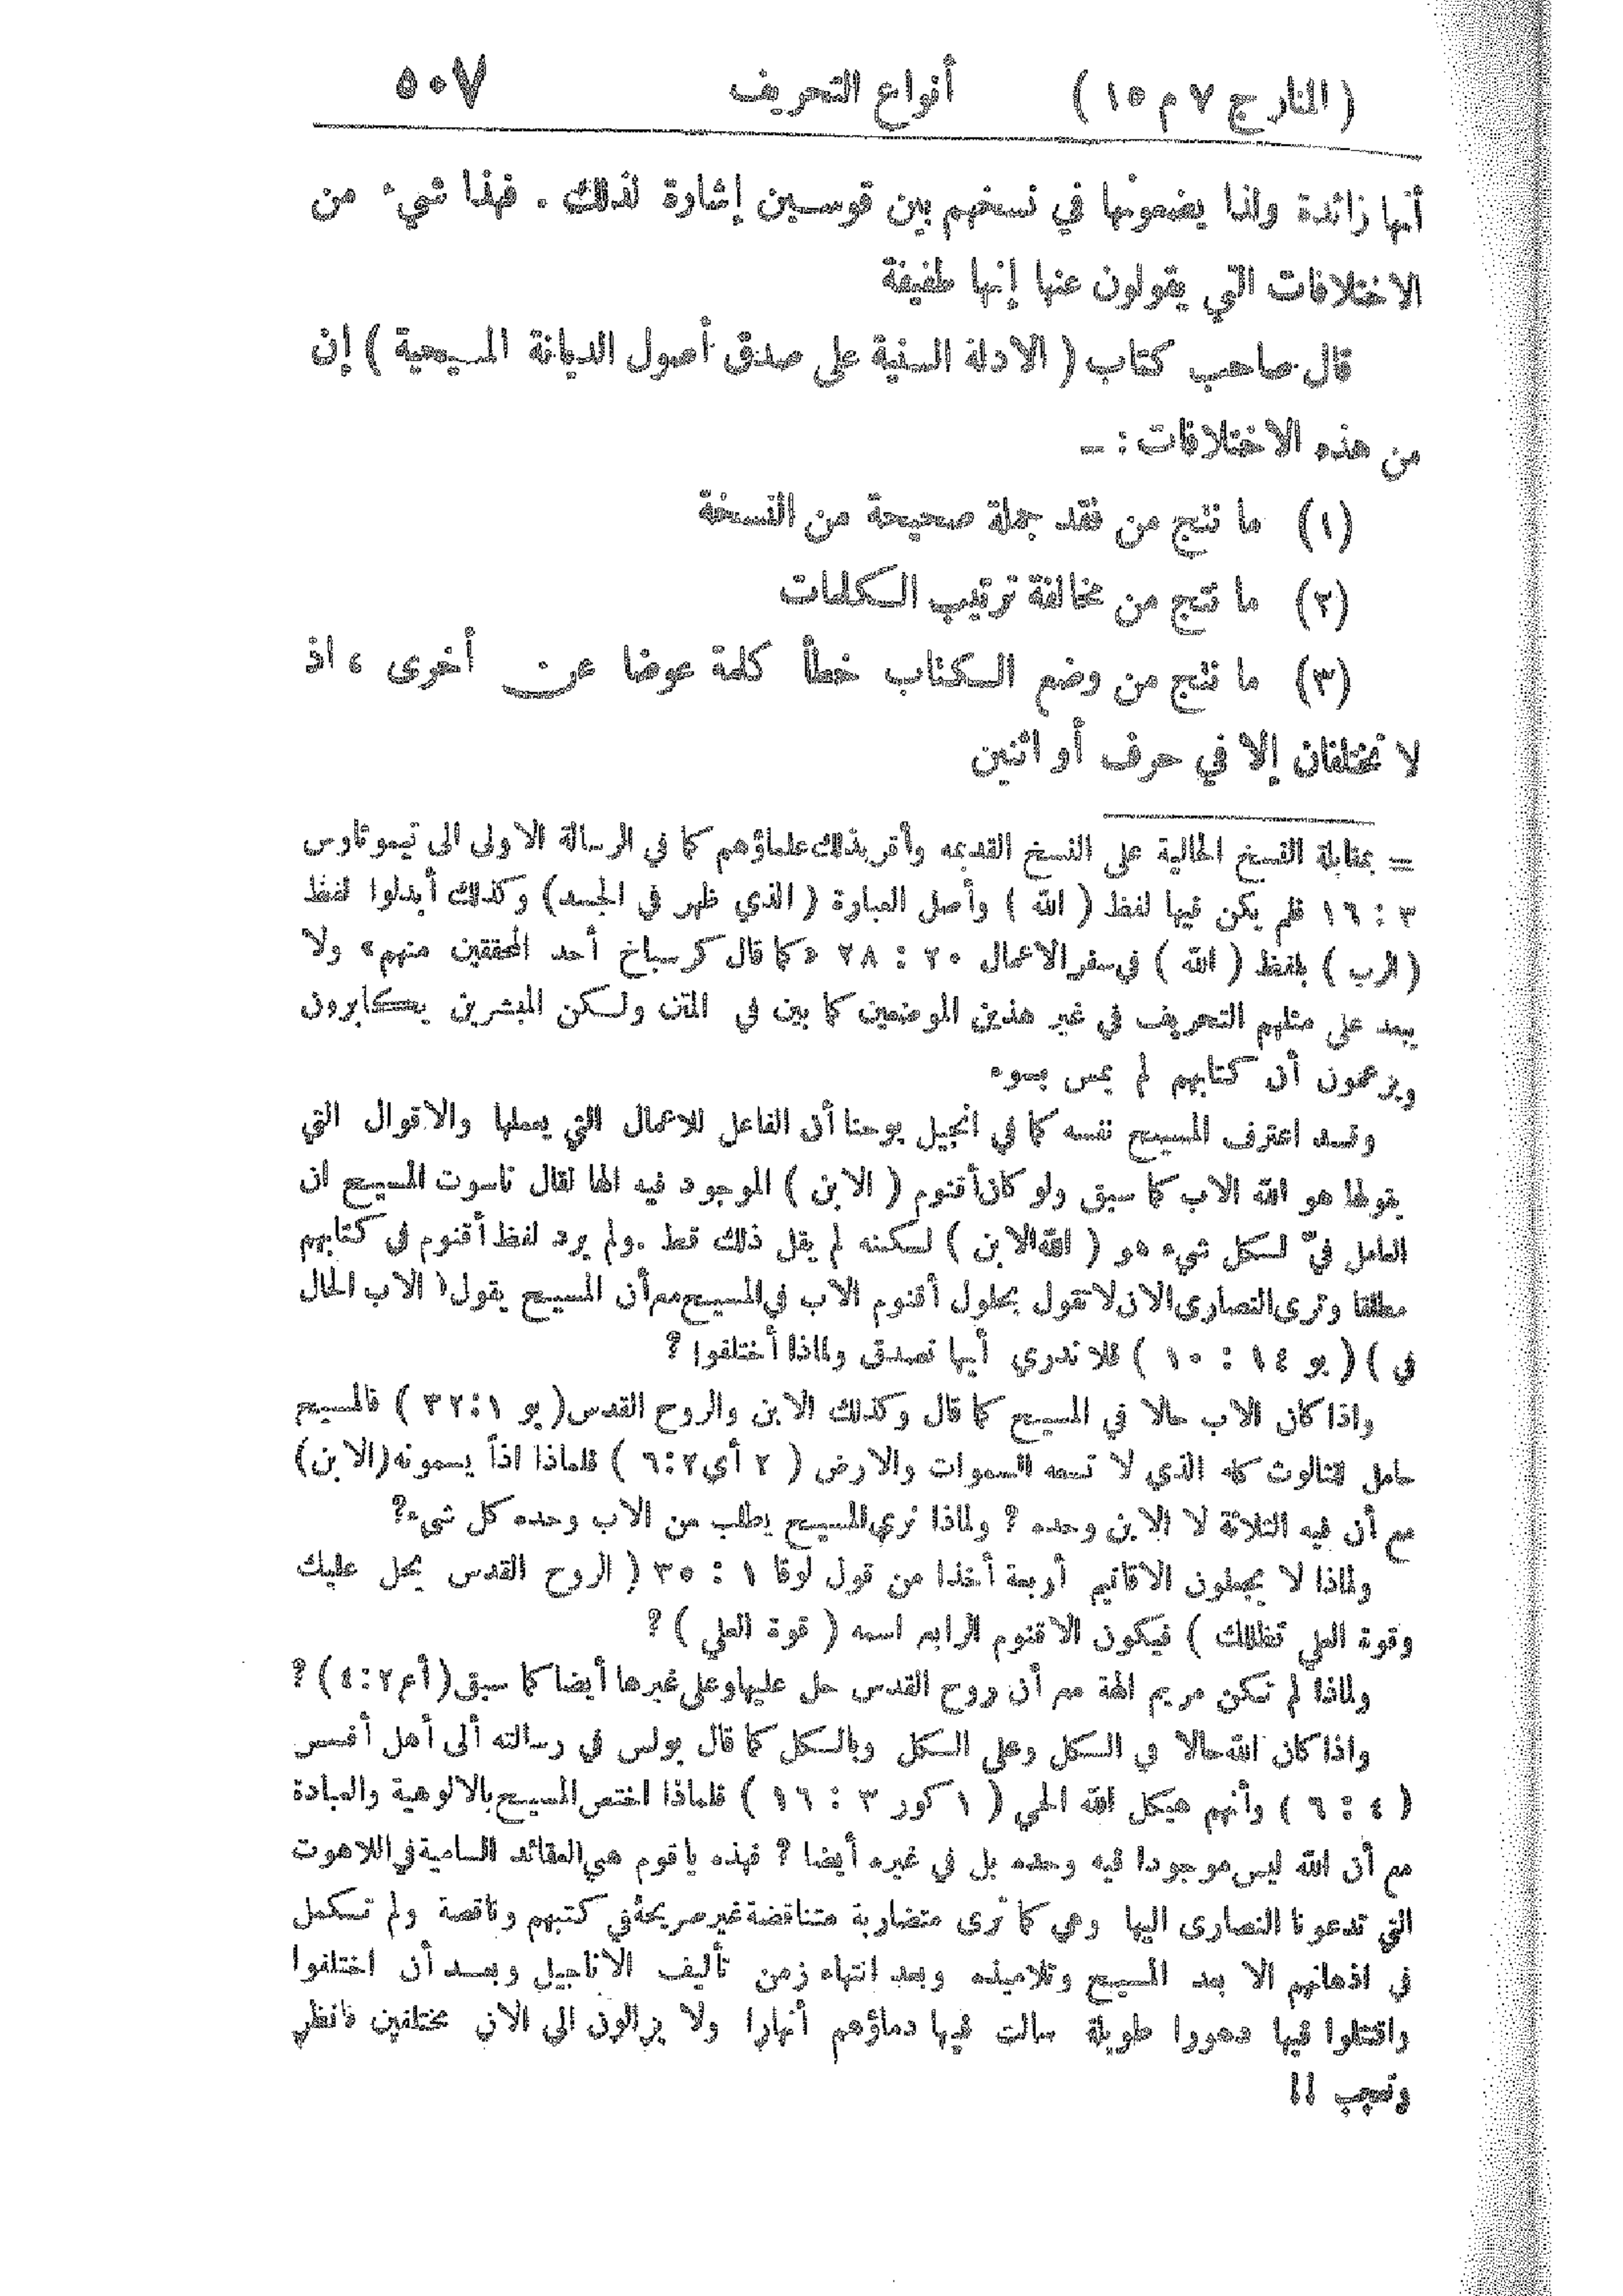 ( المنار ج ٧ م ١٥ ) أنواع التحريف ٥٠٧
أنها زائدة ولذا يضعونها في نسخهم بين قوسين إشارة لذلك . فهذا شيء من
الاختلافات التي يقولون عنها إنها طفيفة
قال صاحب كتاب ( الادلة السنية على صدق أصول الديانة المسيحية ) إن
من هذه الاختلافات : —
(١) ما نتج من فقد جملة صحيحة من النسخة
(٢) ما نتج من مخالفة ترتيب الكلمات
(٣) ما نتج من وضع الكتاب خطأ كلمة عوضا عن أخرى ، اذ
لا تختلفان إلا في حرف أو اثنين
= بمقابلة النسخ الحالية على النسخ القديمه وأقر بذلك علماؤهم كما في الرسالة الاولى الى تيموثاوس
٣ : ١٦ فلم يكن فيها لفظ ( الله ) وأصل العبارة ( الذي ظهر في الجسد ) وكذلك أبدلوا لفظ
( الرب ) بلفظ ( الله ) في سفر الاعمال ٢٠ : ٢٨ «كما قال كرسباخ أحد المحققين منهم» ولا
يبعد على مثلهم التحريف في غير هذين الموضعين كما بين في المتن ولكن المبشرين يكابرون
ويزعمون أن كتابهم لم يمس بسوء
وقد اعترف المسيح نفسه كما في انجيل يوحنا أن الفاعل للاعمال التي يعملها والاقوال التي
يقولها هو الله الاب كما سبق ولو كان أقنوم ( الابن ) الموجود فيه الها لقال ناسوت المسيح ان
العامل فيّ لكل شيء هو ( الله الابن ) لكنه لم يقل ذلك قط . ولم يرد لفظ أقنوم في كتابهم
مطلقا وترى النصارى الان لا تقول بحلول أقنوم الاب في المسيح مع أن المسيح يقول ( الاب الحال
في ) ( يو ١٤ : ١٠ ) فلا ندري أيها نصدق ولماذا أختلفوا ؟
واذا كان الاب حالا في المسيح كما قال وكذلك الابن والروح القدس ( يو ١:٣٢ ) فالمسيح
حامل للثالوث كله الذي لا تسعه السموات والارض ( ٢ أي ٢:٦ ) فلماذا اذاً يسمونه (الابن)
مع أن فيه الثلاثة لا الابن وحده ؟ ولماذا نرى المسيح يطلب من الاب وحده كل شيء؟
ولماذا لا يجعلون الاقانيم أربعة أخذا من قول لوقا ١ : ٣٥ ( الروح القدس يحل عليك
وقوة العلي تظللك ) فيكون الاقنوم الرابع اسمه ( قوة العلي ) ؟
ولماذا لم تكن مريم الهة مع أن روح القدس حل عليها وعلى غيرها أيضا كما سبق ( أع ٢:٤ ) ؟
واذا كان الله حالا في الكل وعلى الكل وبالكل كما قال بولس في رسالته ألى أهل أفسس
( ٤ : ٦ ) وأنهم هيكل الله الحي ( ١ كور ٣ : ١٦ ) فلماذا اختص المسيح بالالوهية والعبادة
مع أن الله ليس موجودا فيه وحده بل في غيره أيضا ؟ فهذه يا قوم هي العقائد السامية في اللاهوت
التي تدعونا النصارى اليها وهي كما ترى متضاربة متناقضة غير صريحة في كتبهم وناقصة ولم تكمل
في اذهانهم الا بعد المسيح وتلاميذه وبعد انتهاء زمن تأليف الاناجيل وبعد أن اختلفوا
واقتتلوا فيها دهورا طويلة سالت فيها دماؤهم أنهارا ولا يزالون الى الان مختلفين فانظر
وتعجب !!